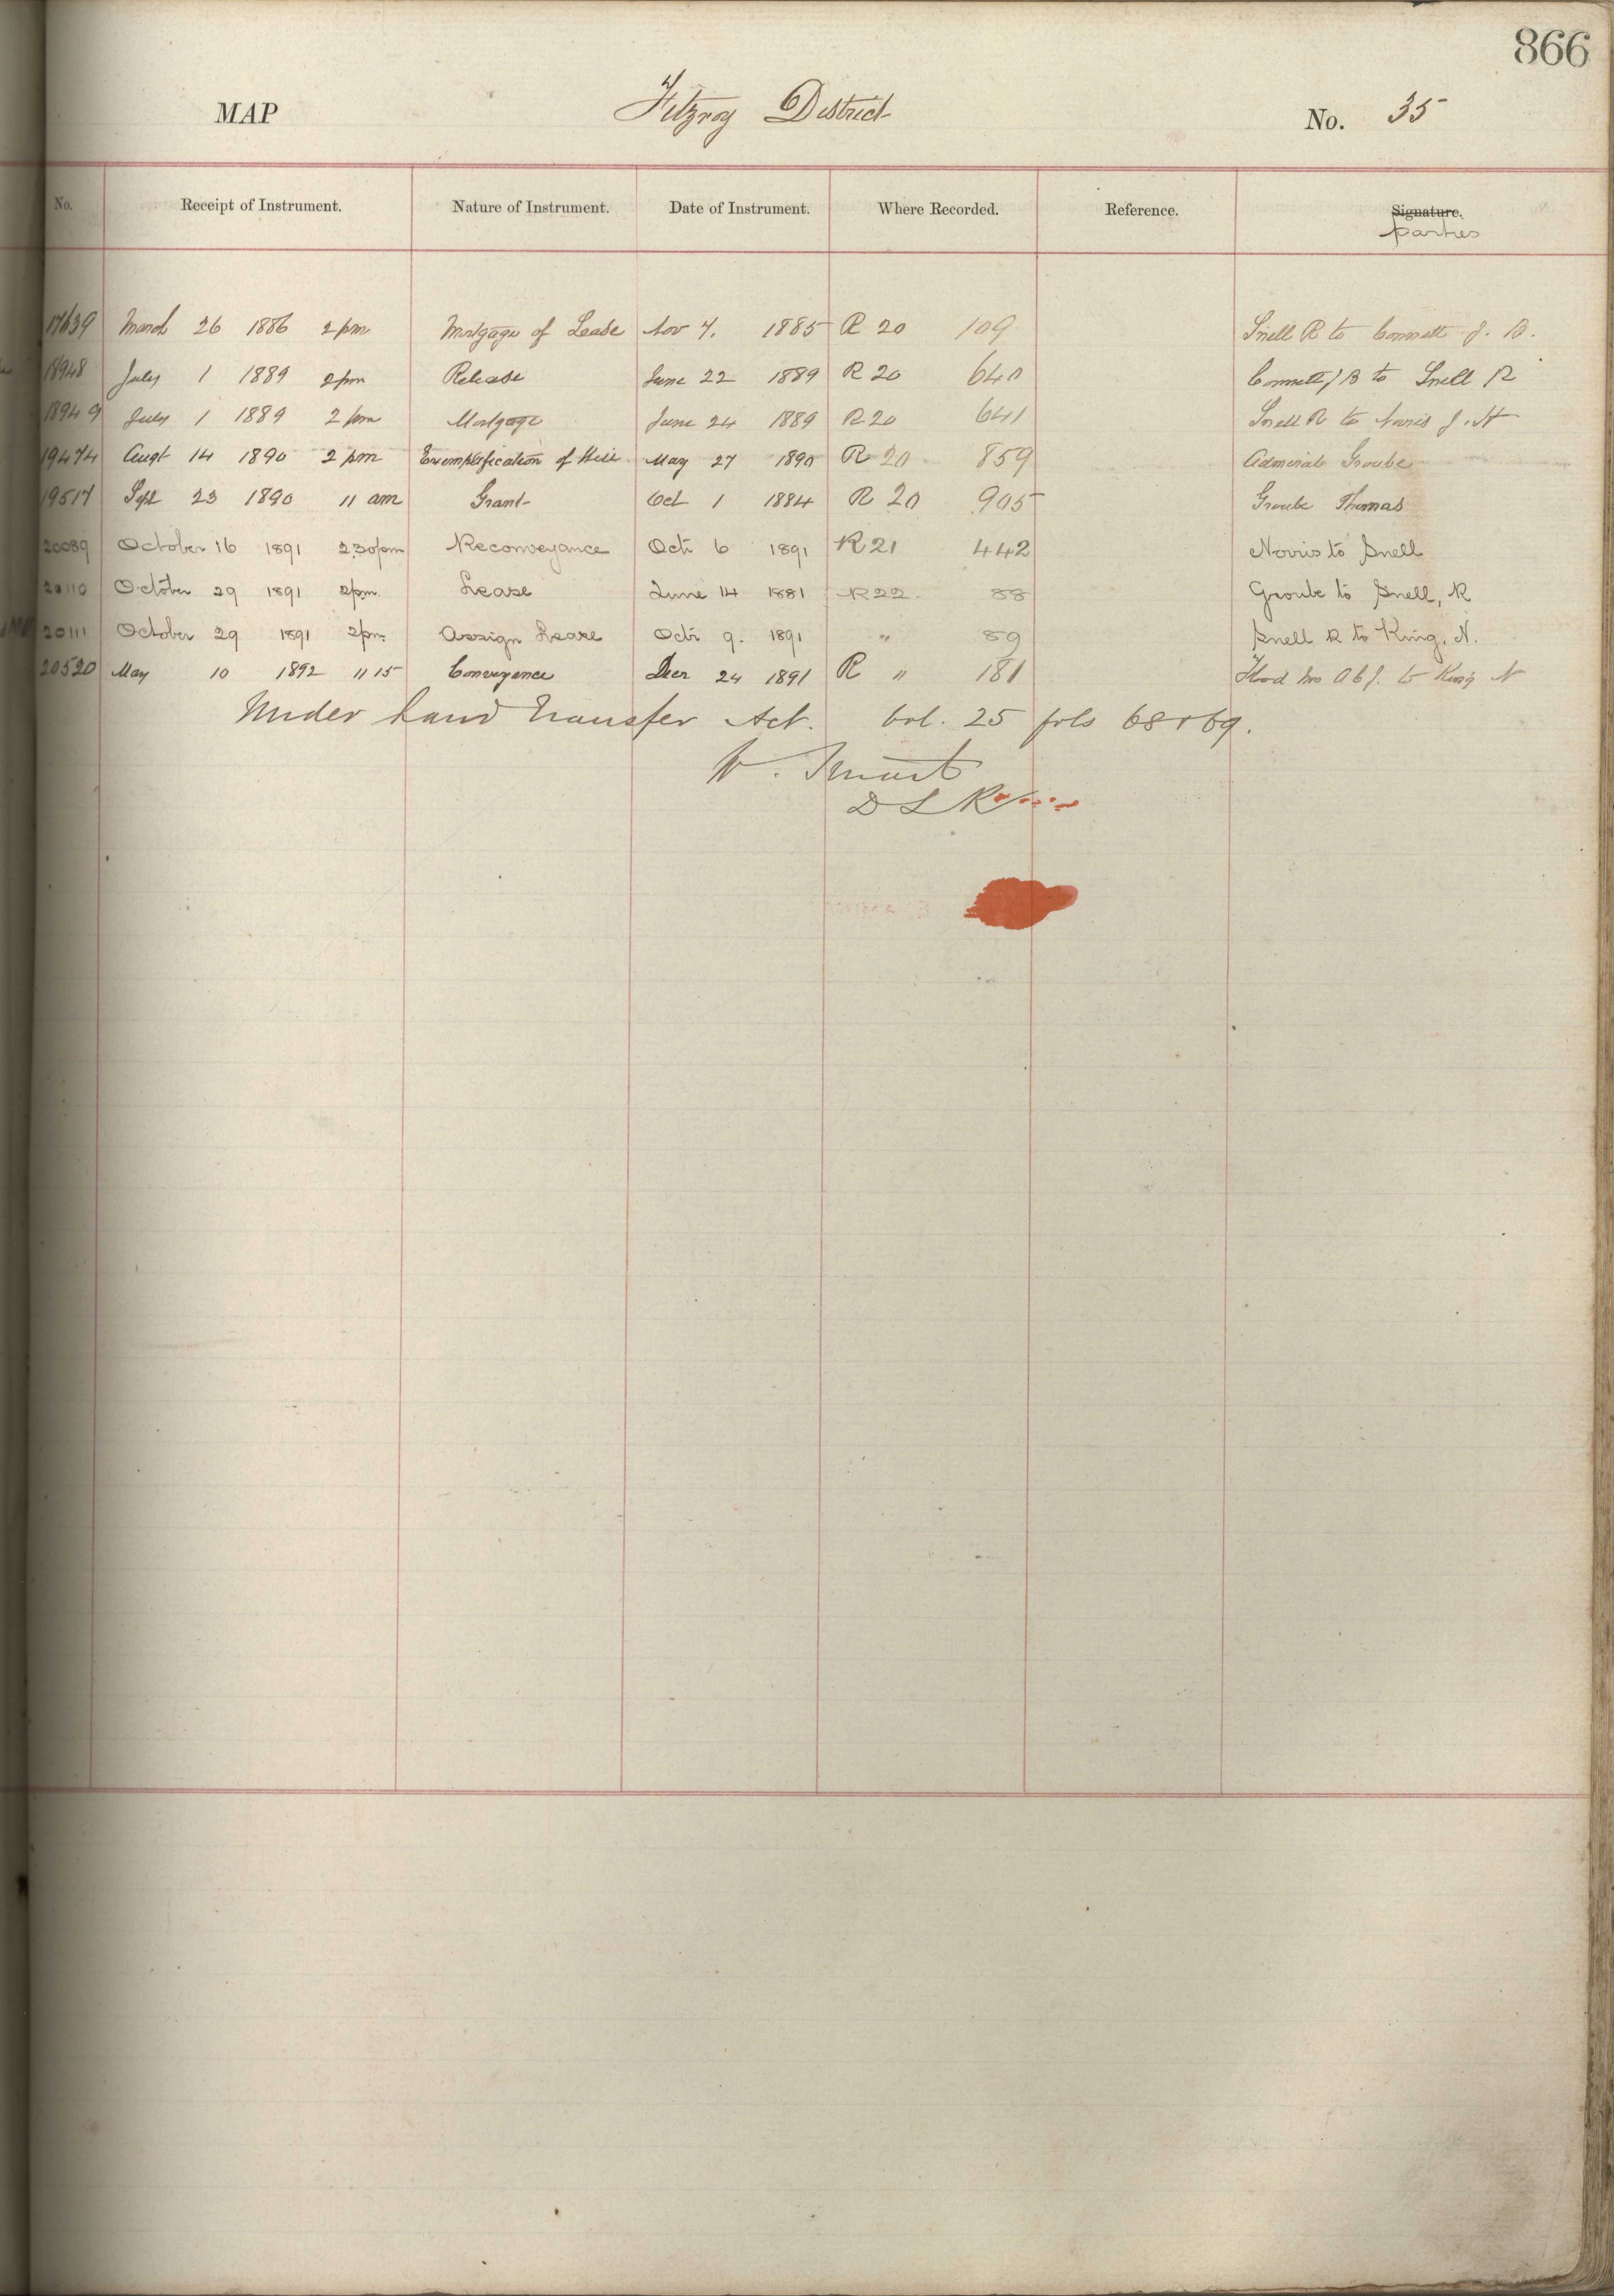 866
MAP Fitzroy District No. 35
No. Receipt of Instrument. Nature of Instrument. Date of Instrument. Where Recorded. Reference. Signature.
parties
17639 March 26 1886 2 pm Mortgage of Lease Nov 7. 1885 R 20 109 Snell R to Connett J. B.
18948 July 1 1889 2 pm Release June 22 1889 R 20 640 Connett J B to Snell R
18949 July 1 1889 2 pm Mortgage June 24 1889 R 20 641 Snell R to Norris J. H
19474 Augt 14 1890 2 pm Exemplification of Will May 27 1890 R 20 859 Admiral Groube
19517 Sept 23 1890 11 am Grant Oct 1 1884 R 20 905 Groube Thomas
20089 October 16 1891 2.30 pm Reconveyance Oct 6 1891 R 21 442 Norris to Snell
20110 October 29 1891 2 pm. Lease June 14 1881 R 22. 88 Groube to Snell, R
20111 October 29 1891 2 pm. Assign Lease Octr 9. 1891 " 89 Snell R to King, N.
20520 May 10 1892 11 15 Conveyance Decr 24 1891 R " 181 to King N
Under Land Transfer Act. Vol. 25 fols 68 & 69.
W. Stuart
D L R